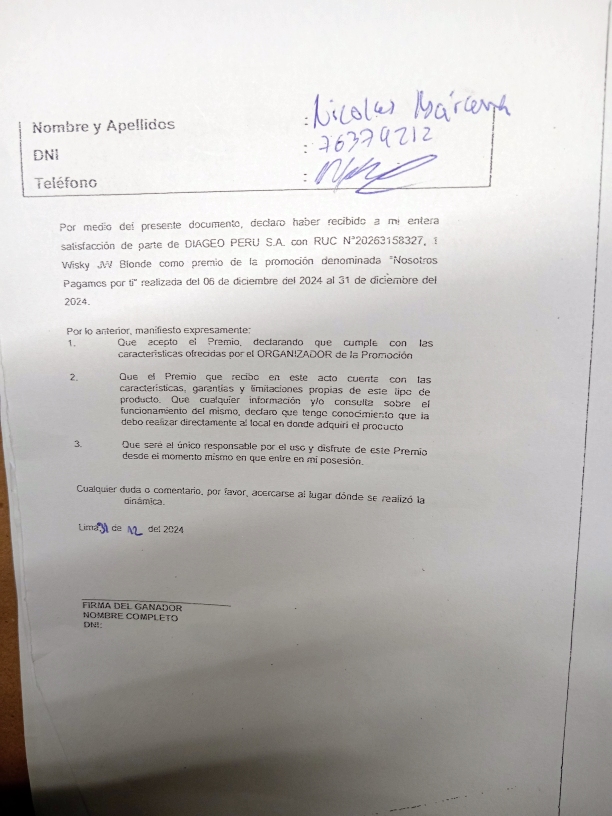 Nombre y Apellidos : Nicolas Bárcena
DNI : 76379212
Teléfono :
Por medio del presente documento, declaro haber recibido a mi entera
satisfacción de parte de DIAGEO PERU S.A. con RUC N°20263158327, 1
Wisky JW Blonde como premio de la promoción denominada "Nosotros
Pagamos por ti" realizada del 06 de diciembre del 2024 al 31 de diciembre del
2024.
Por lo anterior, manifiesto expresamente:
1. Que acepto el Premio, declarando que cumple con las
características ofrecidas por el ORGANIZADOR de la Promoción
2. Que el Premio que recibo en este acto cuenta con las
características, garantías y limitaciones propias de este tipo de
producto. Que cualquier información y/o consulta sobre el
funcionamiento del mismo, declaro que tengo conocimiento que la
debo realizar directamente al local en donde adquirí el producto
3. Que seré el único responsable por el uso y disfrute de este Premio
desde el momento mismo en que entre en mi posesión.
Cualquier duda o comentario, por favor, acercarse al lugar dónde se realizó la
dinámica.
Lima 31 de 12 del 2024
FIRMA DEL GANADOR
NOMBRE COMPLETO
DNI: